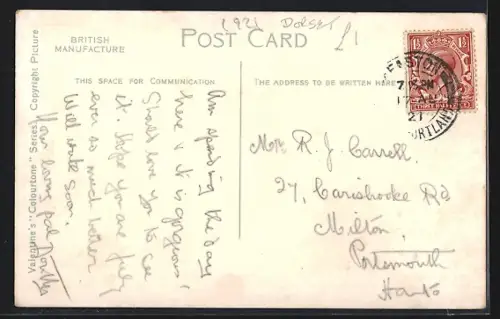 1921 Dorset
£1
BRITISH
MANUFACTURE
POST CARD
THIS SPACE FOR COMMUNICATION
THE ADDRESS TO BE WRITTEN HERE
Valentine's "Colourtone" Series Copyright Picture
Am spending the day
here & it is gorgeous!
Should love you to see
it. Hope you are feeling
ever so much better
Will write soon.
Your loving pal Dorothy
EASTON
PORTLAND
7 PM
21
1½ 1½
THREE HALFPENCE
R. J. Carrell.
27, Carisbrooke Rd
Milton,
Portsmouth
Hants